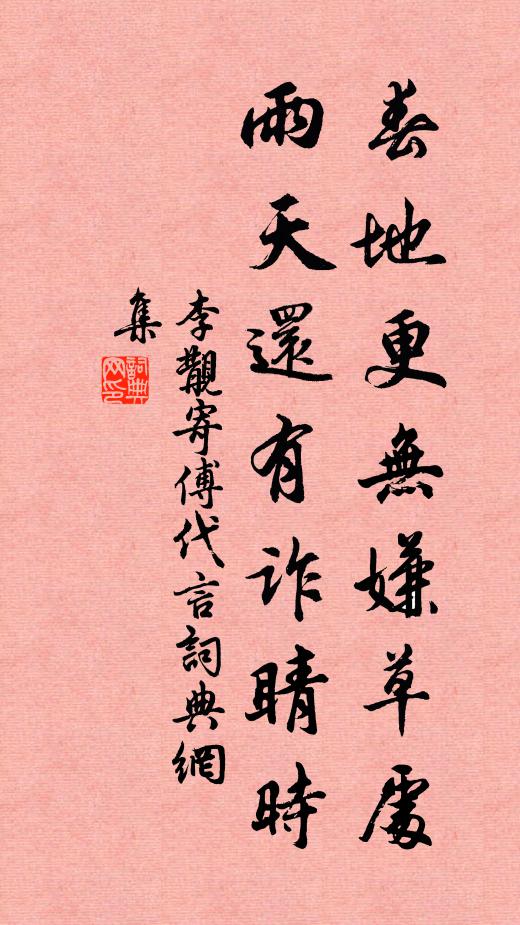 春地更無嫌草處
雨天還有詐晴時
李覯寄傅代言詞典網
集
詞典
网印